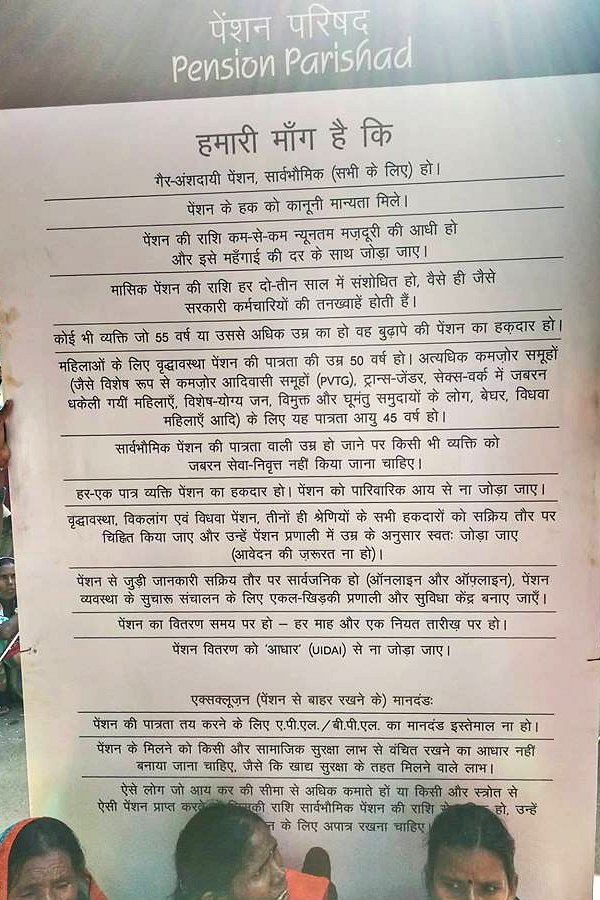 पेंशन परिषद
Pension Parishad
हमारी माँग है कि
गैर-अंशदायी पेंशन, सार्वभौमिक (सभी के लिए) हो।
पेंशन के हक को कानूनी मान्यता मिले।
पेंशन की राशि कम-से-कम न्यूनतम मज़दूरी की आधी हो
और इसे महँगाई की दर के साथ जोड़ा जाए।
मासिक पेंशन की राशि हर दो-तीन साल में संशोधित हो, वैसे ही जैसे
सरकारी कर्मचारियों की तनख्वाहें होती हैं।
कोई भी व्यक्ति जो 55 वर्ष या उससे अधिक उम्र का हो वह बुढ़ापे की पेंशन का हक़दार हो।
महिलाओं के लिए वृद्धावस्था पेंशन की पात्रता की उम्र 50 वर्ष हो। अत्यधिक कमज़ोर समूहों
(जैसे विशेष रूप से कमज़ोर आदिवासी समूहों (PVTG), ट्रान्स-जेंडर, सेक्स-वर्क में जबरन
धकेली गयीं महिलाएँ, विशेष-योग्य जन, विमुक्त और घूमंतु समुदायों के लोग, बेघर, विधवा
महिलाएँ आदि) के लिए यह पात्रता आयु 45 वर्ष हो।
सार्वभौमिक पेंशन की पात्रता वाली उम्र हो जाने पर किसी भी व्यक्ति को
जबरन सेवा-निवृत्त नहीं किया जाना चाहिए।
हर-एक पात्र व्यक्ति पेंशन का हकदार हो। पेंशन को पारिवारिक आय से ना जोड़ा जाए।
वृद्धावस्था, विकलांग एवं विधवा पेंशन, तीनों ही श्रेणियों के सभी हकदारों को सक्रिय तौर पर
चिहित किया जाए और उन्हें पेंशन प्रणाली में उम्र के अनुसार स्वतः जोड़ा जाए
(आवेदन की ज़रूरत ना हो)।
पेंशन से जुड़ी जानकारी सक्रिय तौर पर सार्वजनिक हो (ऑनलाइन और ऑफ़्लाइन), पेंशन
व्यवस्था के सुचारू संचालन के लिए एकल-खिड़की प्रणाली और सुविधा केंद्र बनाए जाएँ।
पेंशन का वितरण समय पर हो – हर माह और एक नियत तारीख़ पर हो।
पेंशन वितरण को 'आधार' (UIDAI) से ना जोड़ा जाए।
एक्सक्लूज़न (पेंशन से बाहर रखने के) मानदंडः
पेंशन की पात्रता तय करने के लिए ए.पी.एल./बी.पी.एल. का मानदंड इस्तेमाल ना हो।
पेंशन के मिलने को किसी और सामाजिक सुरक्षा लाभ से वंचित रखने का आधार नहीं
बनाया जाना चाहिए, जैसे कि खाद्य सुरक्षा के तहत मिलने वाले लाभ।
ऐसे लोग जो आय कर की सीमा से अधिक कमाते हों या किसी और स्त्रोत से
ऐसी पेंशन प्राप्त राशि सार्वभौमिक पेंशन की राशि हो, उन्हें
के लिए अपात्र रखना चाहिए